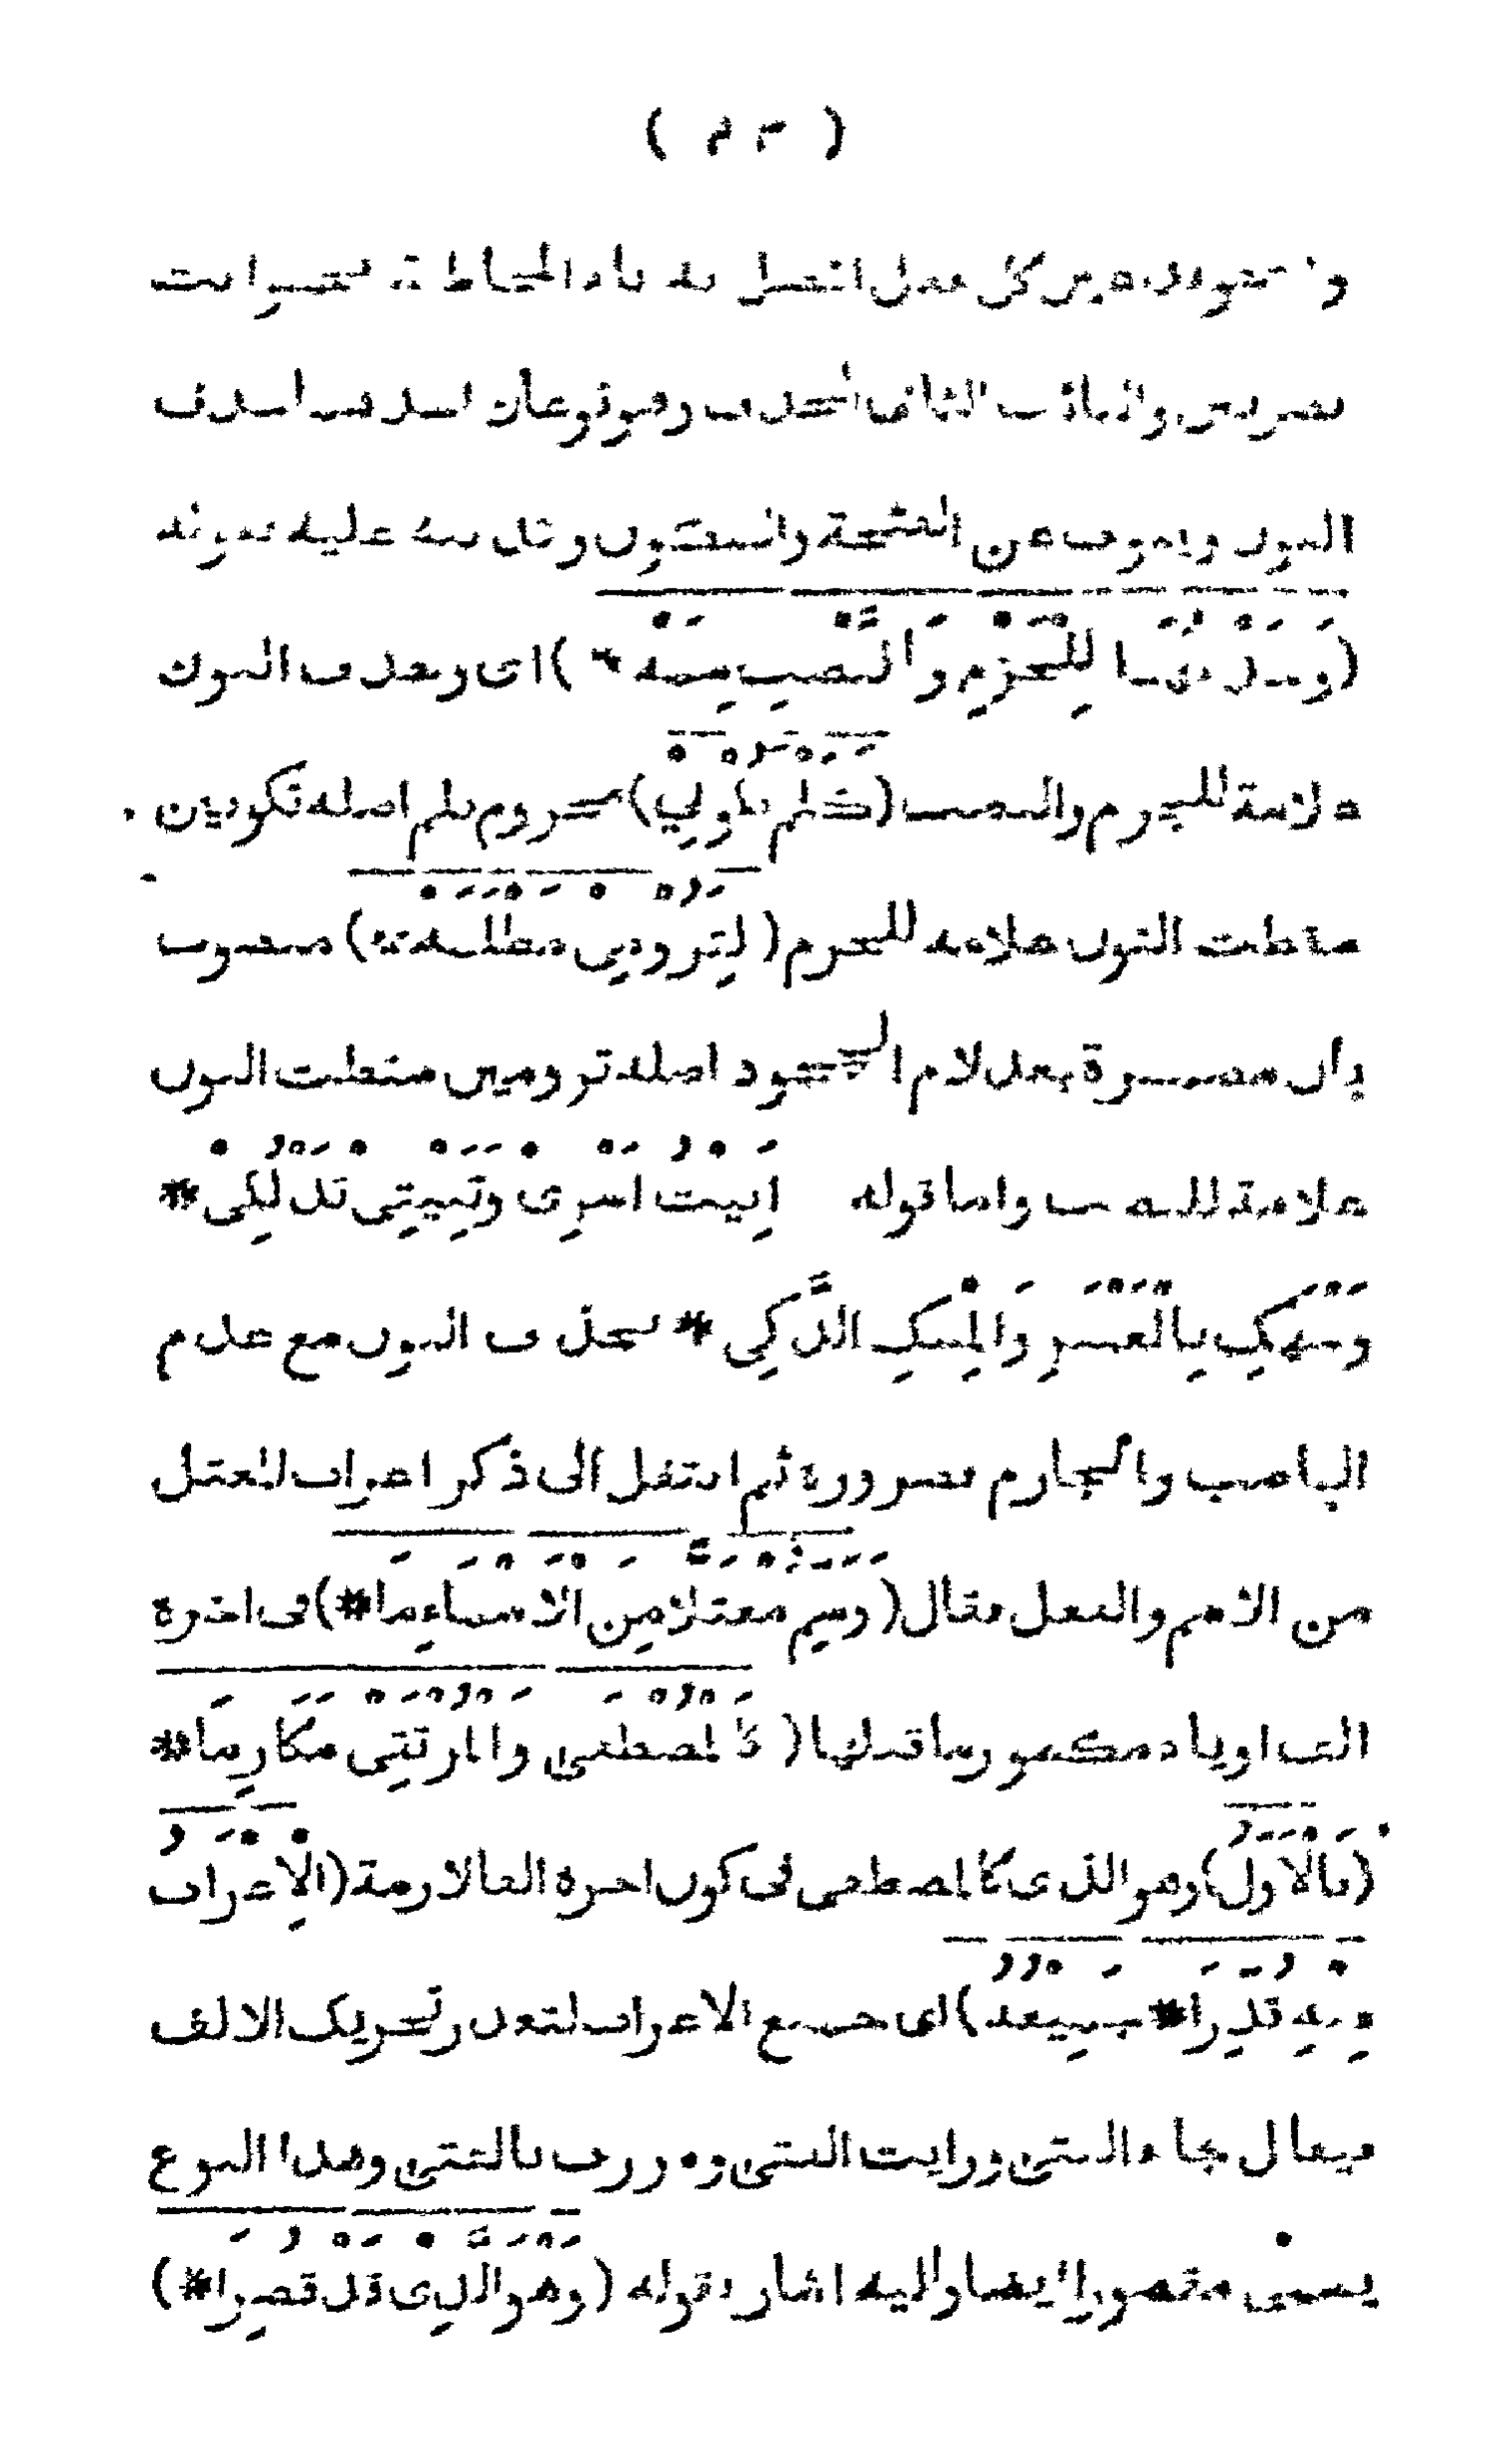 كل فعل اتصل به ياء المخاطبة نحو انت
تضربين والباب الثانى الحذف وهو نوعان احدهما حذف
النون وينوب عن الفتحة والسكون وقد نبه عليه بقوله
(وَحَذْفُهَا لِلْجَزْمِ وَالنَّصْبِ سِمَهْ *) اى وحذف النون
علامة للجزم والنصب (كَلَمْ تَكُونِي) مجزوم بلم اصله تكونين
سقطت النون علامة للجزم (لِتَرُومِي مَظْلَمَهْ) منصوب
بان مضمرة بعد لام الجحود اصله ترومين سقطت النون
علامة للنصب واما قوله اَبِيتُ اَسْرِىْ وَتَبِيتِى تَدْلُكِىْ *
وَجْهَكِ بِالْعَنْبَرِ وَالْمِسْكِ الذَّكِي * بحذف النون مع عدم
الناصب والجازم فضرورة ثم انتقل الى ذكر اعراب المعتل
من الاسم والفعل فقال (وَسَمِّ مُعْتَلًّا مِنَ الْاَسْمَاءِ مَا *) فى اخره
الف او ياء مكسور ما قبلها (كَالْمُصْطَفَى وَالْمُرْتَقِى مَكَارِمَا *
(فَالْاَوَّلُ) وهو الذى كالمصطفى فى كون اخره الفا لازمة (الْاِعْرَابُ
فِيهِ قُدِّرَا * جَمِيعُهُ) اى جميع الاعراب لتعذر تحريك الالف
فيقال جاء الفتى ورايت الفتى ومررت بالفتى وهذا النوع
يسمى مقصورا ايضا واليه اشار بقوله (وَهُوَ الَّذِى قَدْ قُصِرَا *)